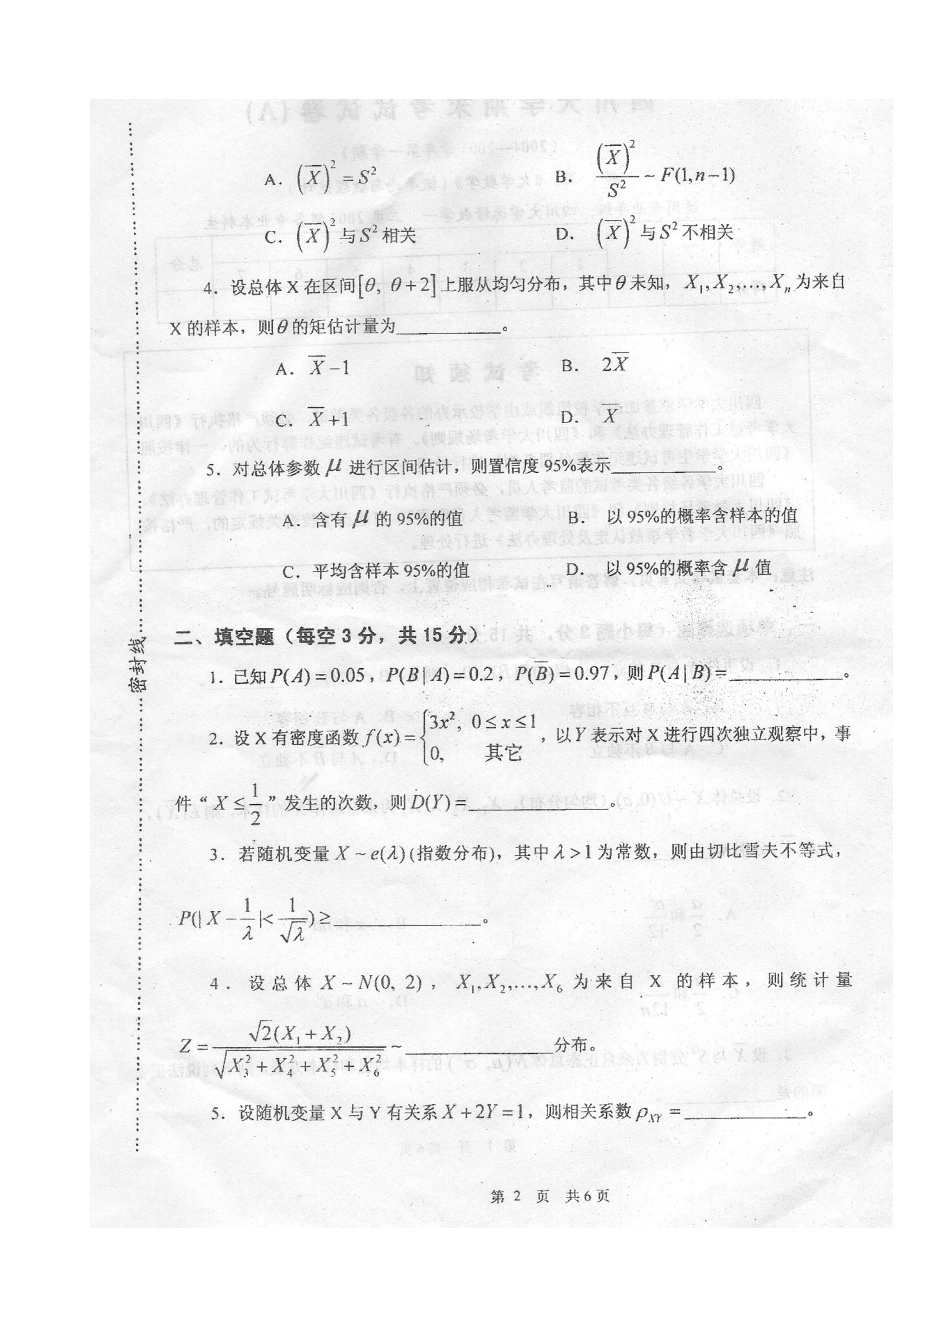 A. (X̄)² = S²    B. (X̄)²/S² ~ F(1, n−1)
C. (X̄)² 与 S² 相关    D. (X̄)² 与 S² 不相关
4. 设总体 X 在区间[θ, θ+2]上服从均匀分布，其中θ未知，X₁,X₂,…,Xₙ为来自
X 的样本，则θ的矩估计量为________。
A. X̄−1    B. 2X̄
C. X̄+1    D. X
5. 对总体参数 μ 进行区间估计，则置信度 95%表示________。
A. 含有 μ 的 95%的值    B. 以 95%的概率含样本的值
C. 平均含样本 95%的值    D. 以 95%的概率含 μ 值
二、填空题（每空 3 分，共 15 分）
1. 已知 P(A)=0.05，P(B|A)=0.2，P(B̄)=0.97，则 P(A|B)=________。
2. 设 X 有密度函数 f(x)={3x², 0≤x≤1; 0, 其它，以 Y 表示对 X 进行四次独立观察中，事
件“X≤1/2”发生的次数，则 D(Y)=________。
3. 若随机变量 X ~ e(λ)(指数分布)，其中 λ>1 为常数，则由切比雪夫不等式，
P(|X−1/λ|<1/√λ)≥________。
4. 设总体 X ~ N(0, 2)，X₁,X₂,…,X₆ 为来自 X 的样本，则统计量
Z=√2(X₁+X₂)/√(X₃²+X₄²+X₅²+X₆²) ~ ________分布。
5. 设随机变量 X 与 Y 有关系 X+2Y=1，则相关系数 ρ_XY =________。
第 2 页 共6页
密封线